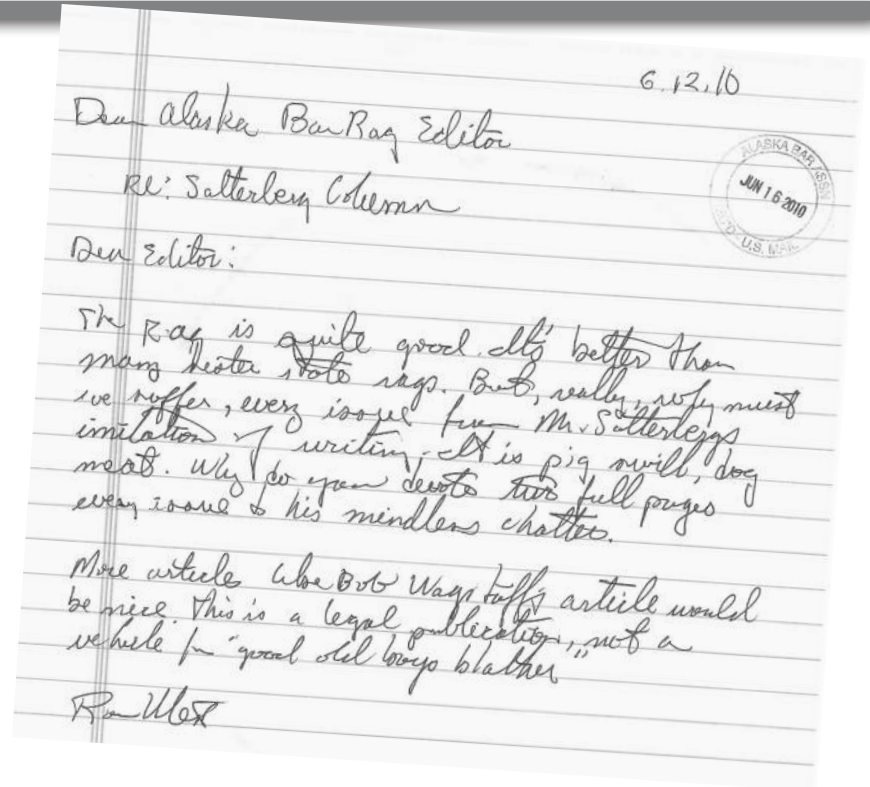 6.12.10
Dear Alaska Bar Rag Editor
ALASKA BAR ASSN
JUN 16 2010
U.S. MAIL
Re: Satterberg Column
Dear Editor:
The Rag is quite good. It's better than
many sister state rags. But, really, why must
we suffer, every issue from Mr. Satterbergs
imitation of writing. It is pig swill, dog
meat. Why do you devote two full pages
every issue to his mindless chatter.
More articles like Bob Wagstaff's article would
be nice. This is a legal publication, not a
vehicle for "good old boys blather"
Ron West